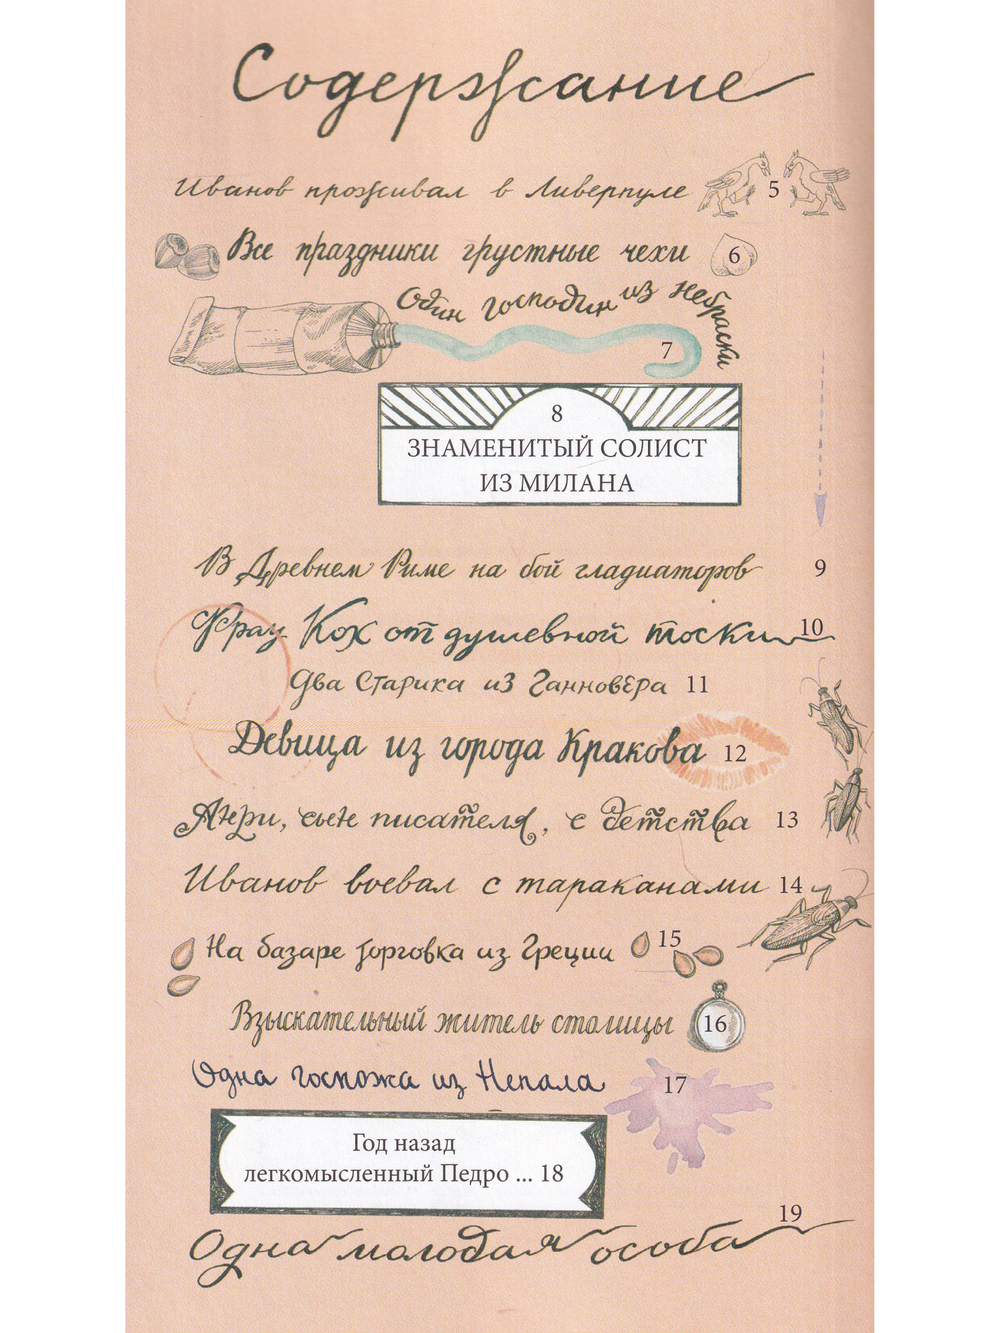 Содержание
Иванов проживал в Ливерпуле 5
Все праздники грустные чехи 6
Один господин из Небраски
7
8
ЗНАМЕНИТЫЙ СОЛИСТ
ИЗ МИЛАНА
В Древнем Риме на бой гладиаторов 9
Фрау Кох от душевной тоски 10
Два старика из Ганновера 11
Девица из города Кракова 12
Анри, сын писателя, с детства 13
Иванов воевал с тараканами 14
На базаре торговка из Греции 15
Взыскательный житель столицы 16
Одна госпожа из Непала 17
Год назад
легкомысленный Педро ... 18
Одна молодая особа 19